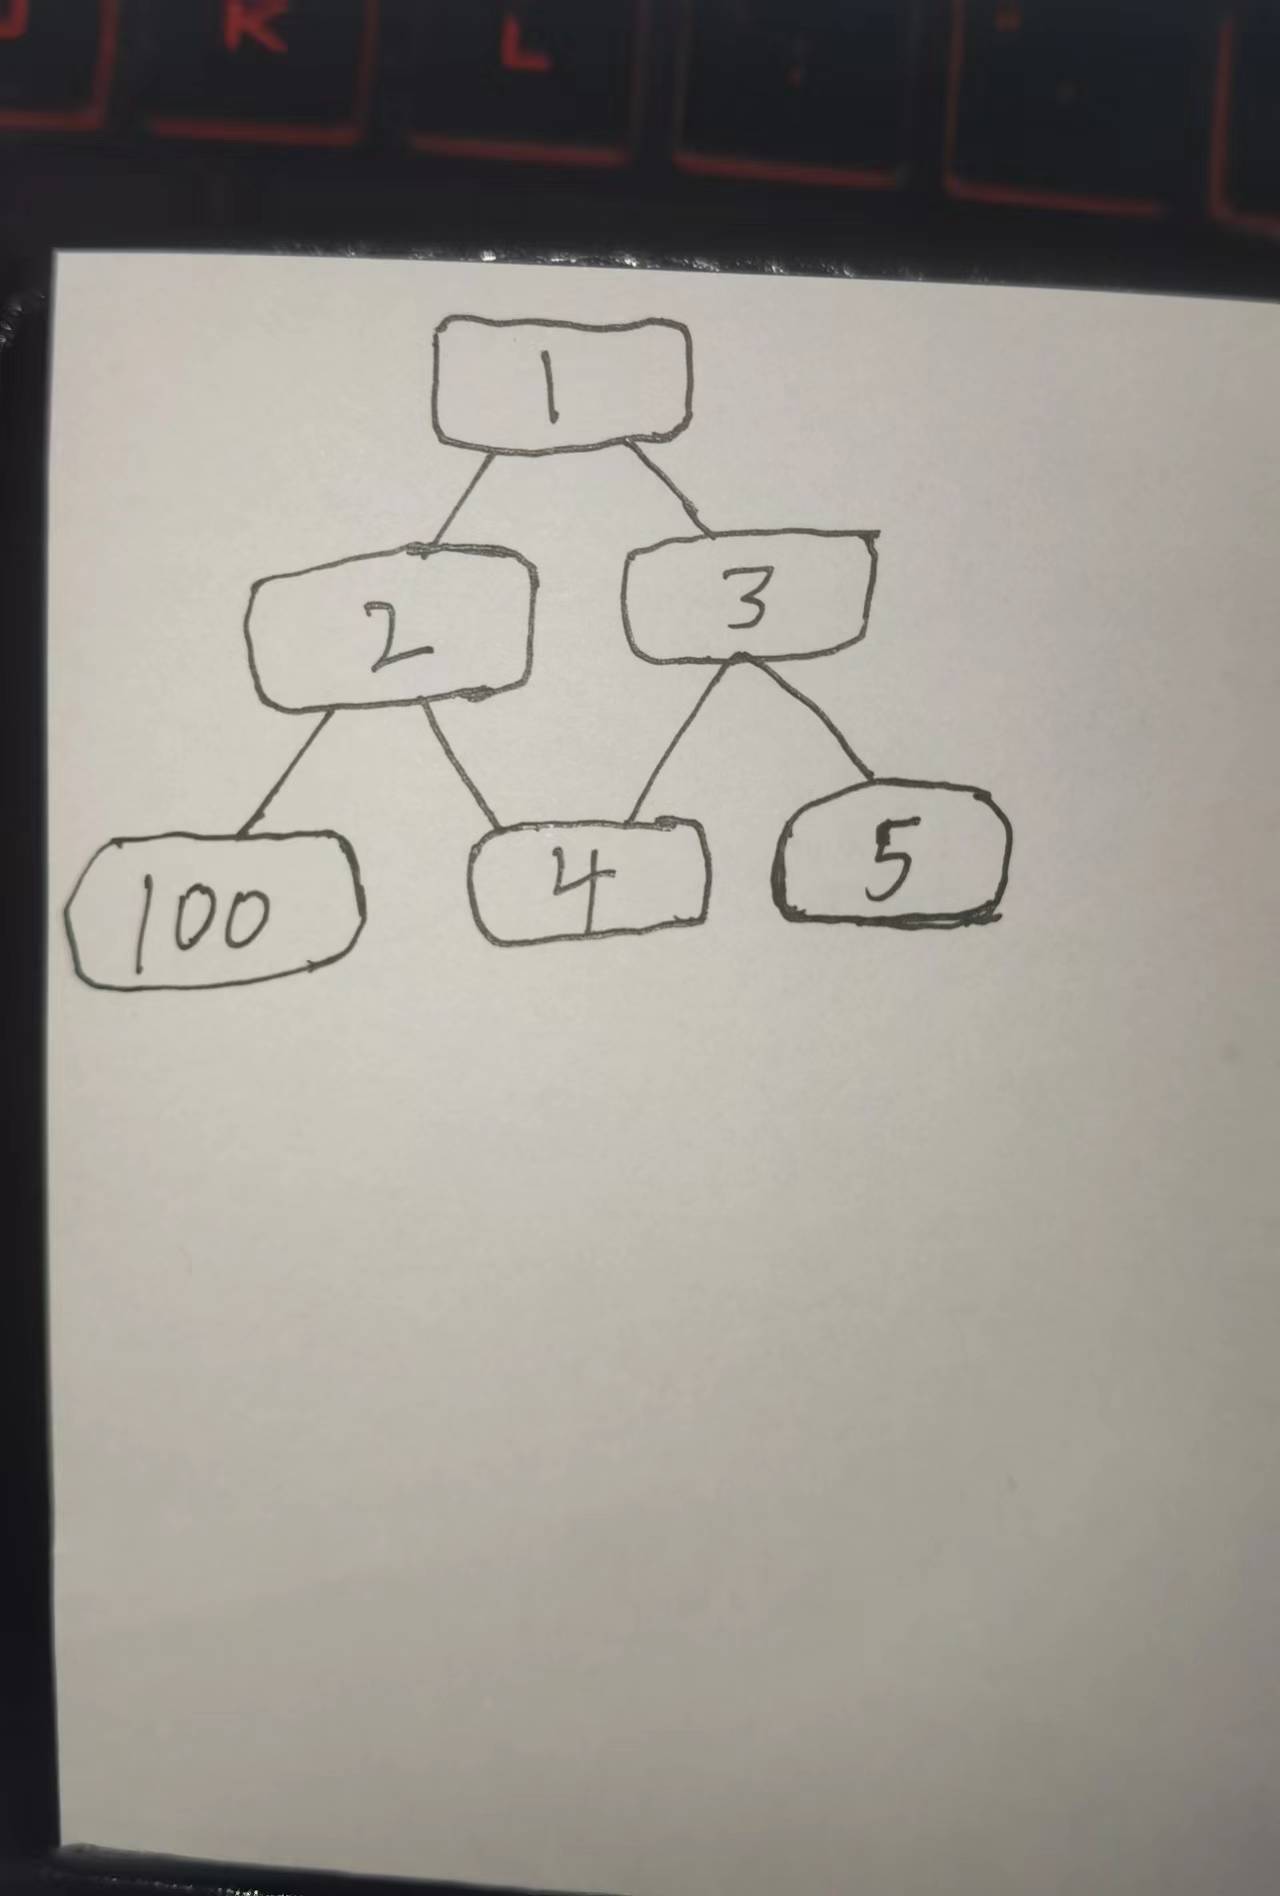 K L
1
2 3
100 4 5